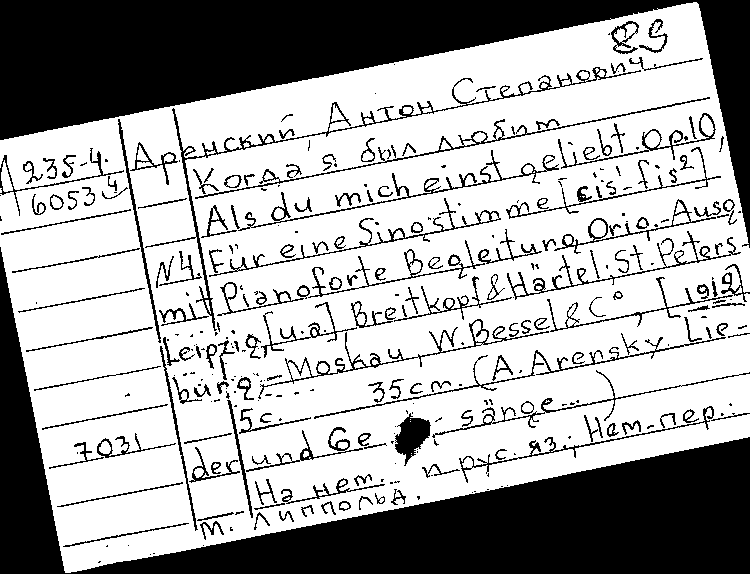 89
Аренский, Антон Степанович.
Д 235-4.
6053 4
Когда я был любим
Als du mich einst geliebt. Op.10,
N4. Für eine Singstimme [cis¹-fis²]
mit Pianoforte Begleitung Orig.-Ausg
Leipzig, [u.a.], Breitkopf & Härtel; St. Peters-
burg,- Moskau, W. Bessel & C°, [1912]
5с. 35cm. (A. Arensky Lie-
7031
der und Ge sänge...)
На нем. и рус. яз.; Нем. пер.:
М. Липпольд.